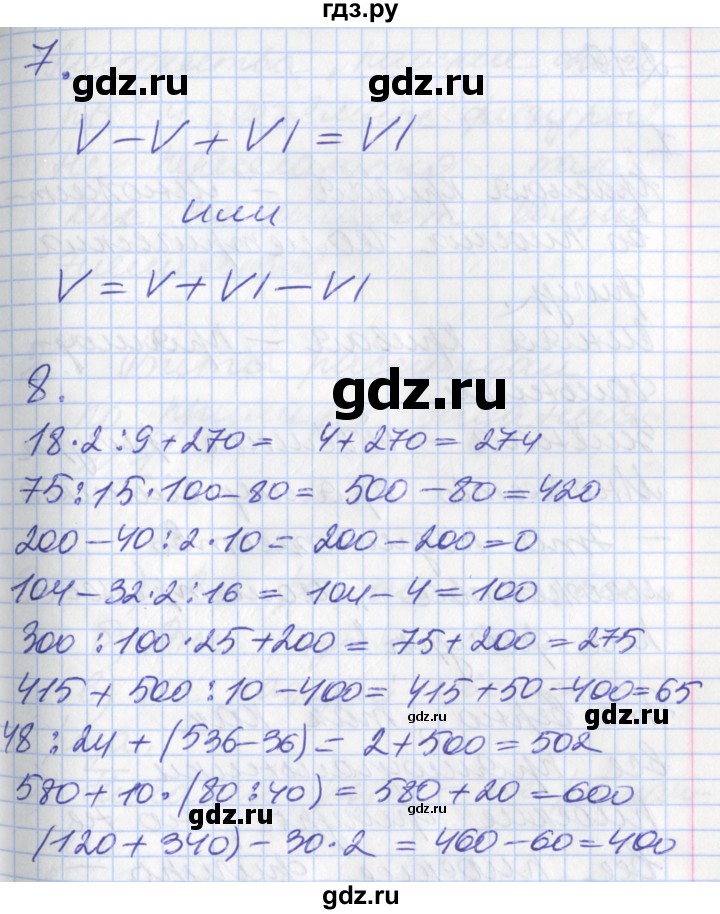 гдз.ру
7.
gdz.ru
gdz.ru
V – V + VI = VI
или
V = V + VI – VI
8.
gdz.ru
18·2:9+270 = 4+270 = 274
75:15·100–80 = 500–80 = 420
200–40:2·10 = 200–200 = 0
104–32·2:16 = 104–4 = 100
300:100·25+200 = 75+200 = 275
415+500:10–400 = 415+50–400 = 65
gdz.ru
gdz.ru
48:24+(536–36) = 2+500 = 502
580+10·(80:40) = 580+20 = 600
gdz.ru
(120+340)–30·2 = 460–60 = 400
gdz.ru